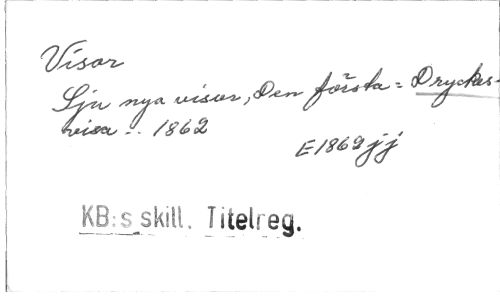 Visor
Sju nya visor, Den första = Dryckes-
visa .. 1862
E1862jj
KB:s skill. Titelreg.